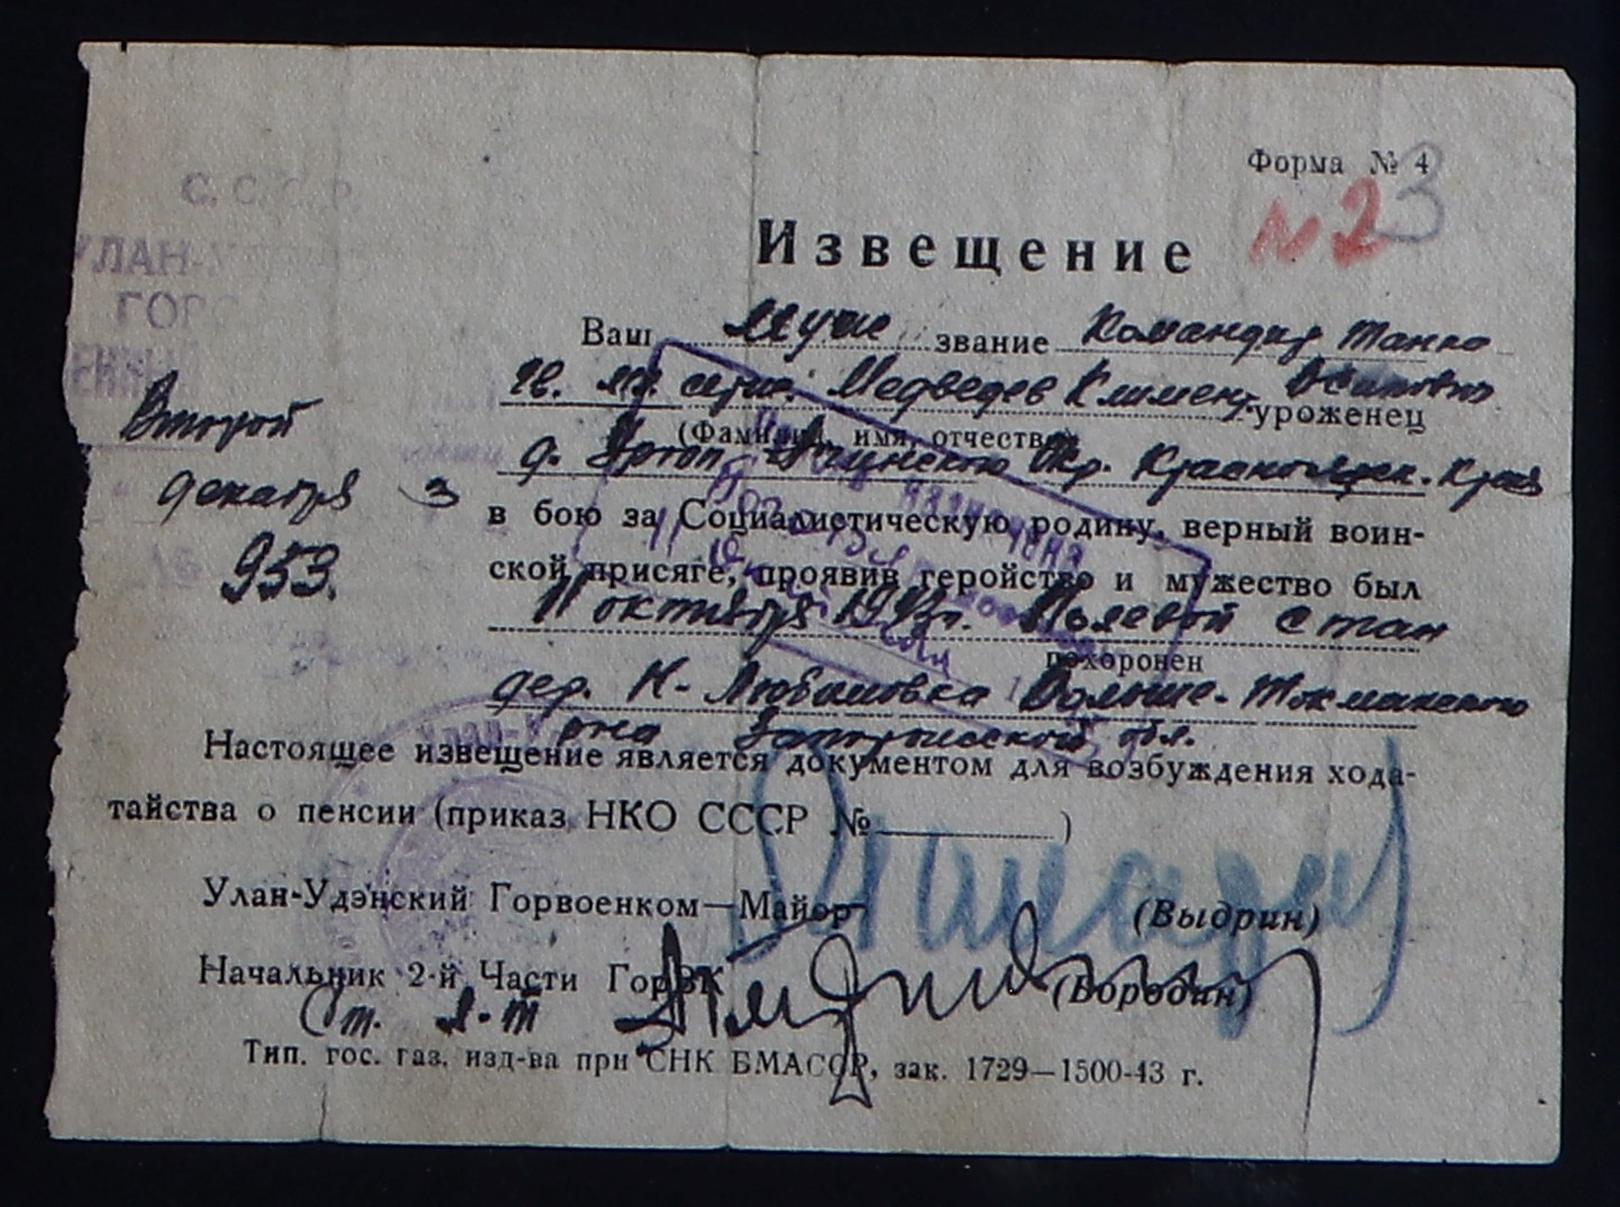 Форма № 4
3
№ 2
С. С. С. Р.
УЛАН-У
ГОР
ЕННЫЙ
Извещение
Ваш муж звание Командир танка
гв. мл. лейт. Медведев Климент Осипович уроженец
(Фамилия, имя, отчество)
д. Ачинского Окр. Красноярск. Края
Второй
декабря 3
953.
в бою за Социалистическую родину, верный воин-
ской присяге, проявив геройство и мужество был
11 октября 1943г. Полевой стан
похоронен
дер. Н-Любимовка Больше-Токмакского
р-на Запорожской обл.
Настоящее извещение является документом для возбуждения хода-
тайства о пенсии (приказ НКО СССР № )
Улан-Удэнский Горвоенком—Майор (Выдрин)
Начальник 2-й Части ГорВК (Бородин)
Ст. л-т
Тип. гос. газ. изд-ва при СНК БМАССР, зак. 1729—1500-43 г.